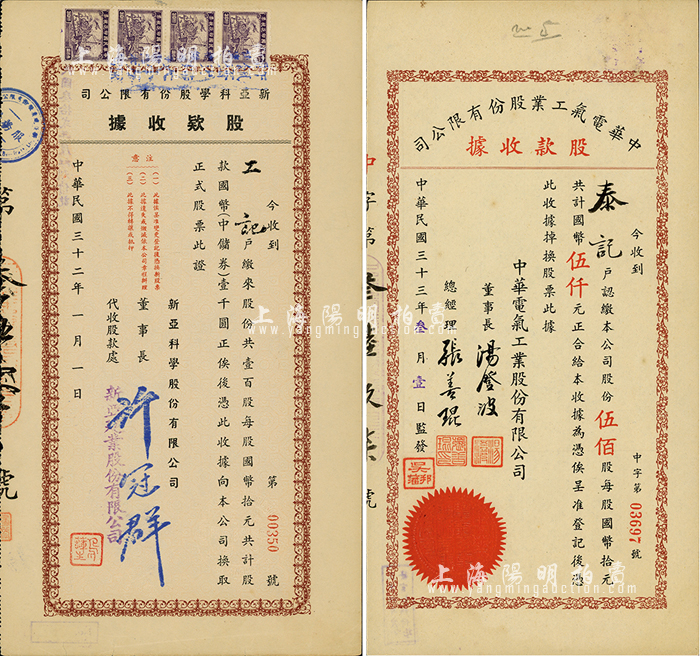 新亞科學股份有限公司
股款收據
今收到
工記戶繳來股份共壹百股每股國幣拾元共計股
款國幣(中儲券)壹千圓正俟後憑此收據向本公司換取
正式股票此證
新亞科學股份有限公司
董事長
許冠群
代收股款處
新亞企業股份有限公司
注意
中華民國三十二年一月一日
第00350號
上海陽明拍賣
www.yangmingauction.com
中華電氣工業股份有限公司
股款收據
今收到
泰記戶認繳本公司股份伍佰股每股國幣拾元
共計國幣伍仟元正合給本收據為憑俟呈准登記後憑
此收據掉換股票此據
中華電氣工業股份有限公司
董事長 湯澄波
總經理 張善琨
中華民國三十三年叁月壹日監發
中字第03697號
上海陽明拍賣
www.yangmingauction.com